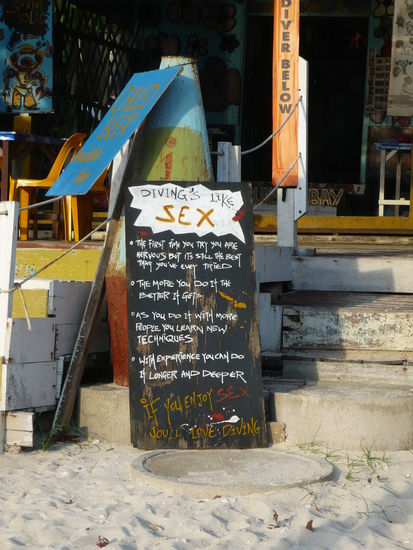 DIVER BELOW
DIVING'S LIKE
SEX
THE FIRST TIME YOU TRY YOU ARE
NERVOUS BUT ITS STILL THE BEST
THAT YOU'VE EVER TRIED
THE MORE YOU DO IT THE
BETTER IT GETS
AS YOU DO IT WITH MORE
PEOPLE YOU LEARN NEW
TECHNIQUES
WITH EXPERIENCE YOU CAN DO
IT LONGER AND DEEPER
IF YOU ENJOY SEX
YOU'LL LOVE DIVING
BAY